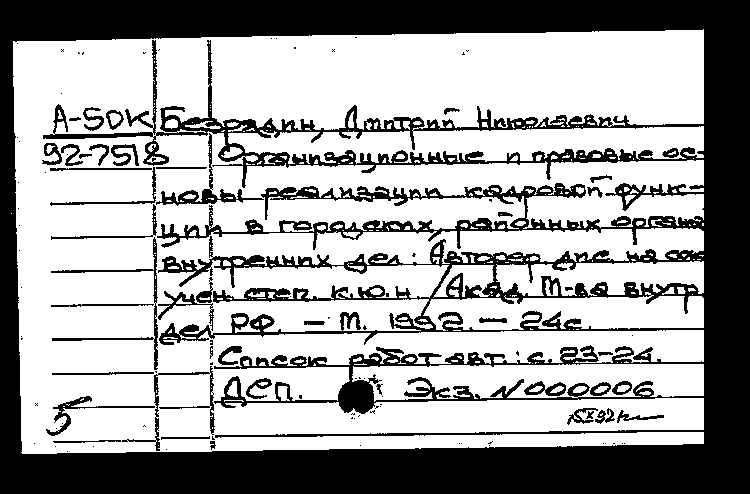 А-5ДК Безрядин, Дмитрий Николаевич.
92-7518 Организационные и правовые ос-
новы реализации кадровой функ-
ции в городских, районных органа
внутренних дел : Автореф. дис. на сои
учен. степ. к.ю.н. Акад. М-ва внутр.
дел РФ. — М., 1992. — 24с.
Список работ авт.: с. 23-24.
ДСП. Экз. N000006.
5